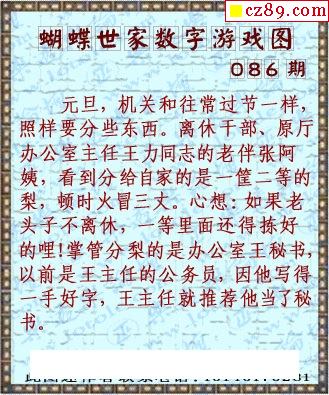 cz89.com
蝴蝶世家数字游戏图
086 期
元旦，机关和往常过节一样，
照样要分些东西。离休干部、原厅
办公室主任王力同志的老伴张阿
姨，看到分给自家的是一筐二等的
梨，顿时火冒三丈。心想：如果老
头子不离休，一等里面还得拣好
的哩!掌管分梨的是办公室王秘书，
以前是王主任的公务员，因他写得
一手好字，王主任就推荐他当了秘
书。